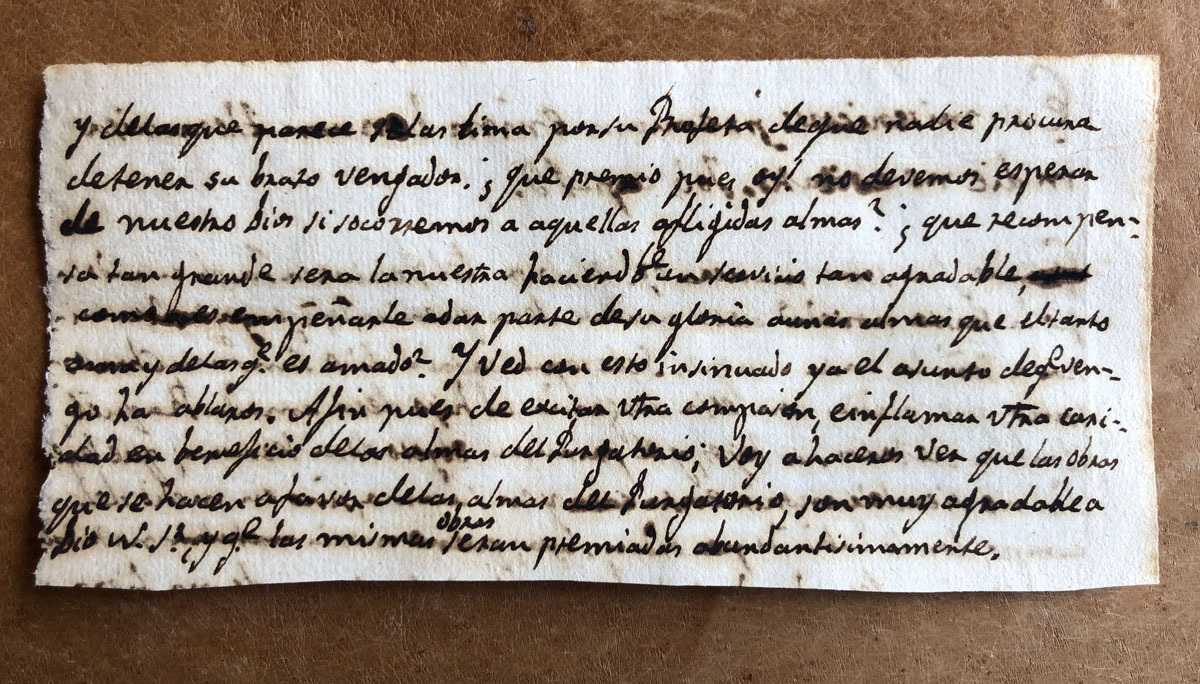 y delas que parece se lastima por su Profeta de que nadie procura
detener su braso vengador. ¿que premio pues oy! no devemos esperar
de nuestro Dios si socorremos a aquellas afligidas almas? ¿que recompen-
sa tan grande sera la nuestra haciendole un servicio tan agradable,
como es empeñarle a dar parte de su gloria a unas almas que el tanto
y delas q.e es amado? Y Ved con esto insinuado ya el asunto de q.e ven-
go ha ablaros. A fin pues de excitar vtra compasion, e inflamar vtra cari-
dad en beneficio de las almas del Purgatorio; Voy a haceros ver que las obras
que se hacen a favor de las almas del Purgatorio, son muy agradable a
Dio N. Sr, y q.e las mismas obras seran premiadas abundantisimamente.